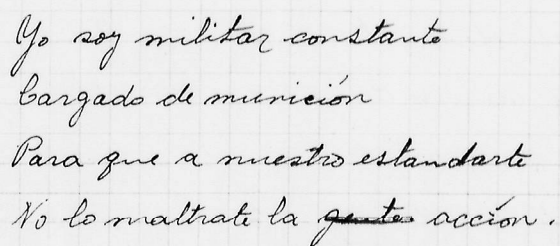 Yo soy militar constante
Cargado de munición
Para que a nuestro estandarte
No lo maltrate la gente acción.